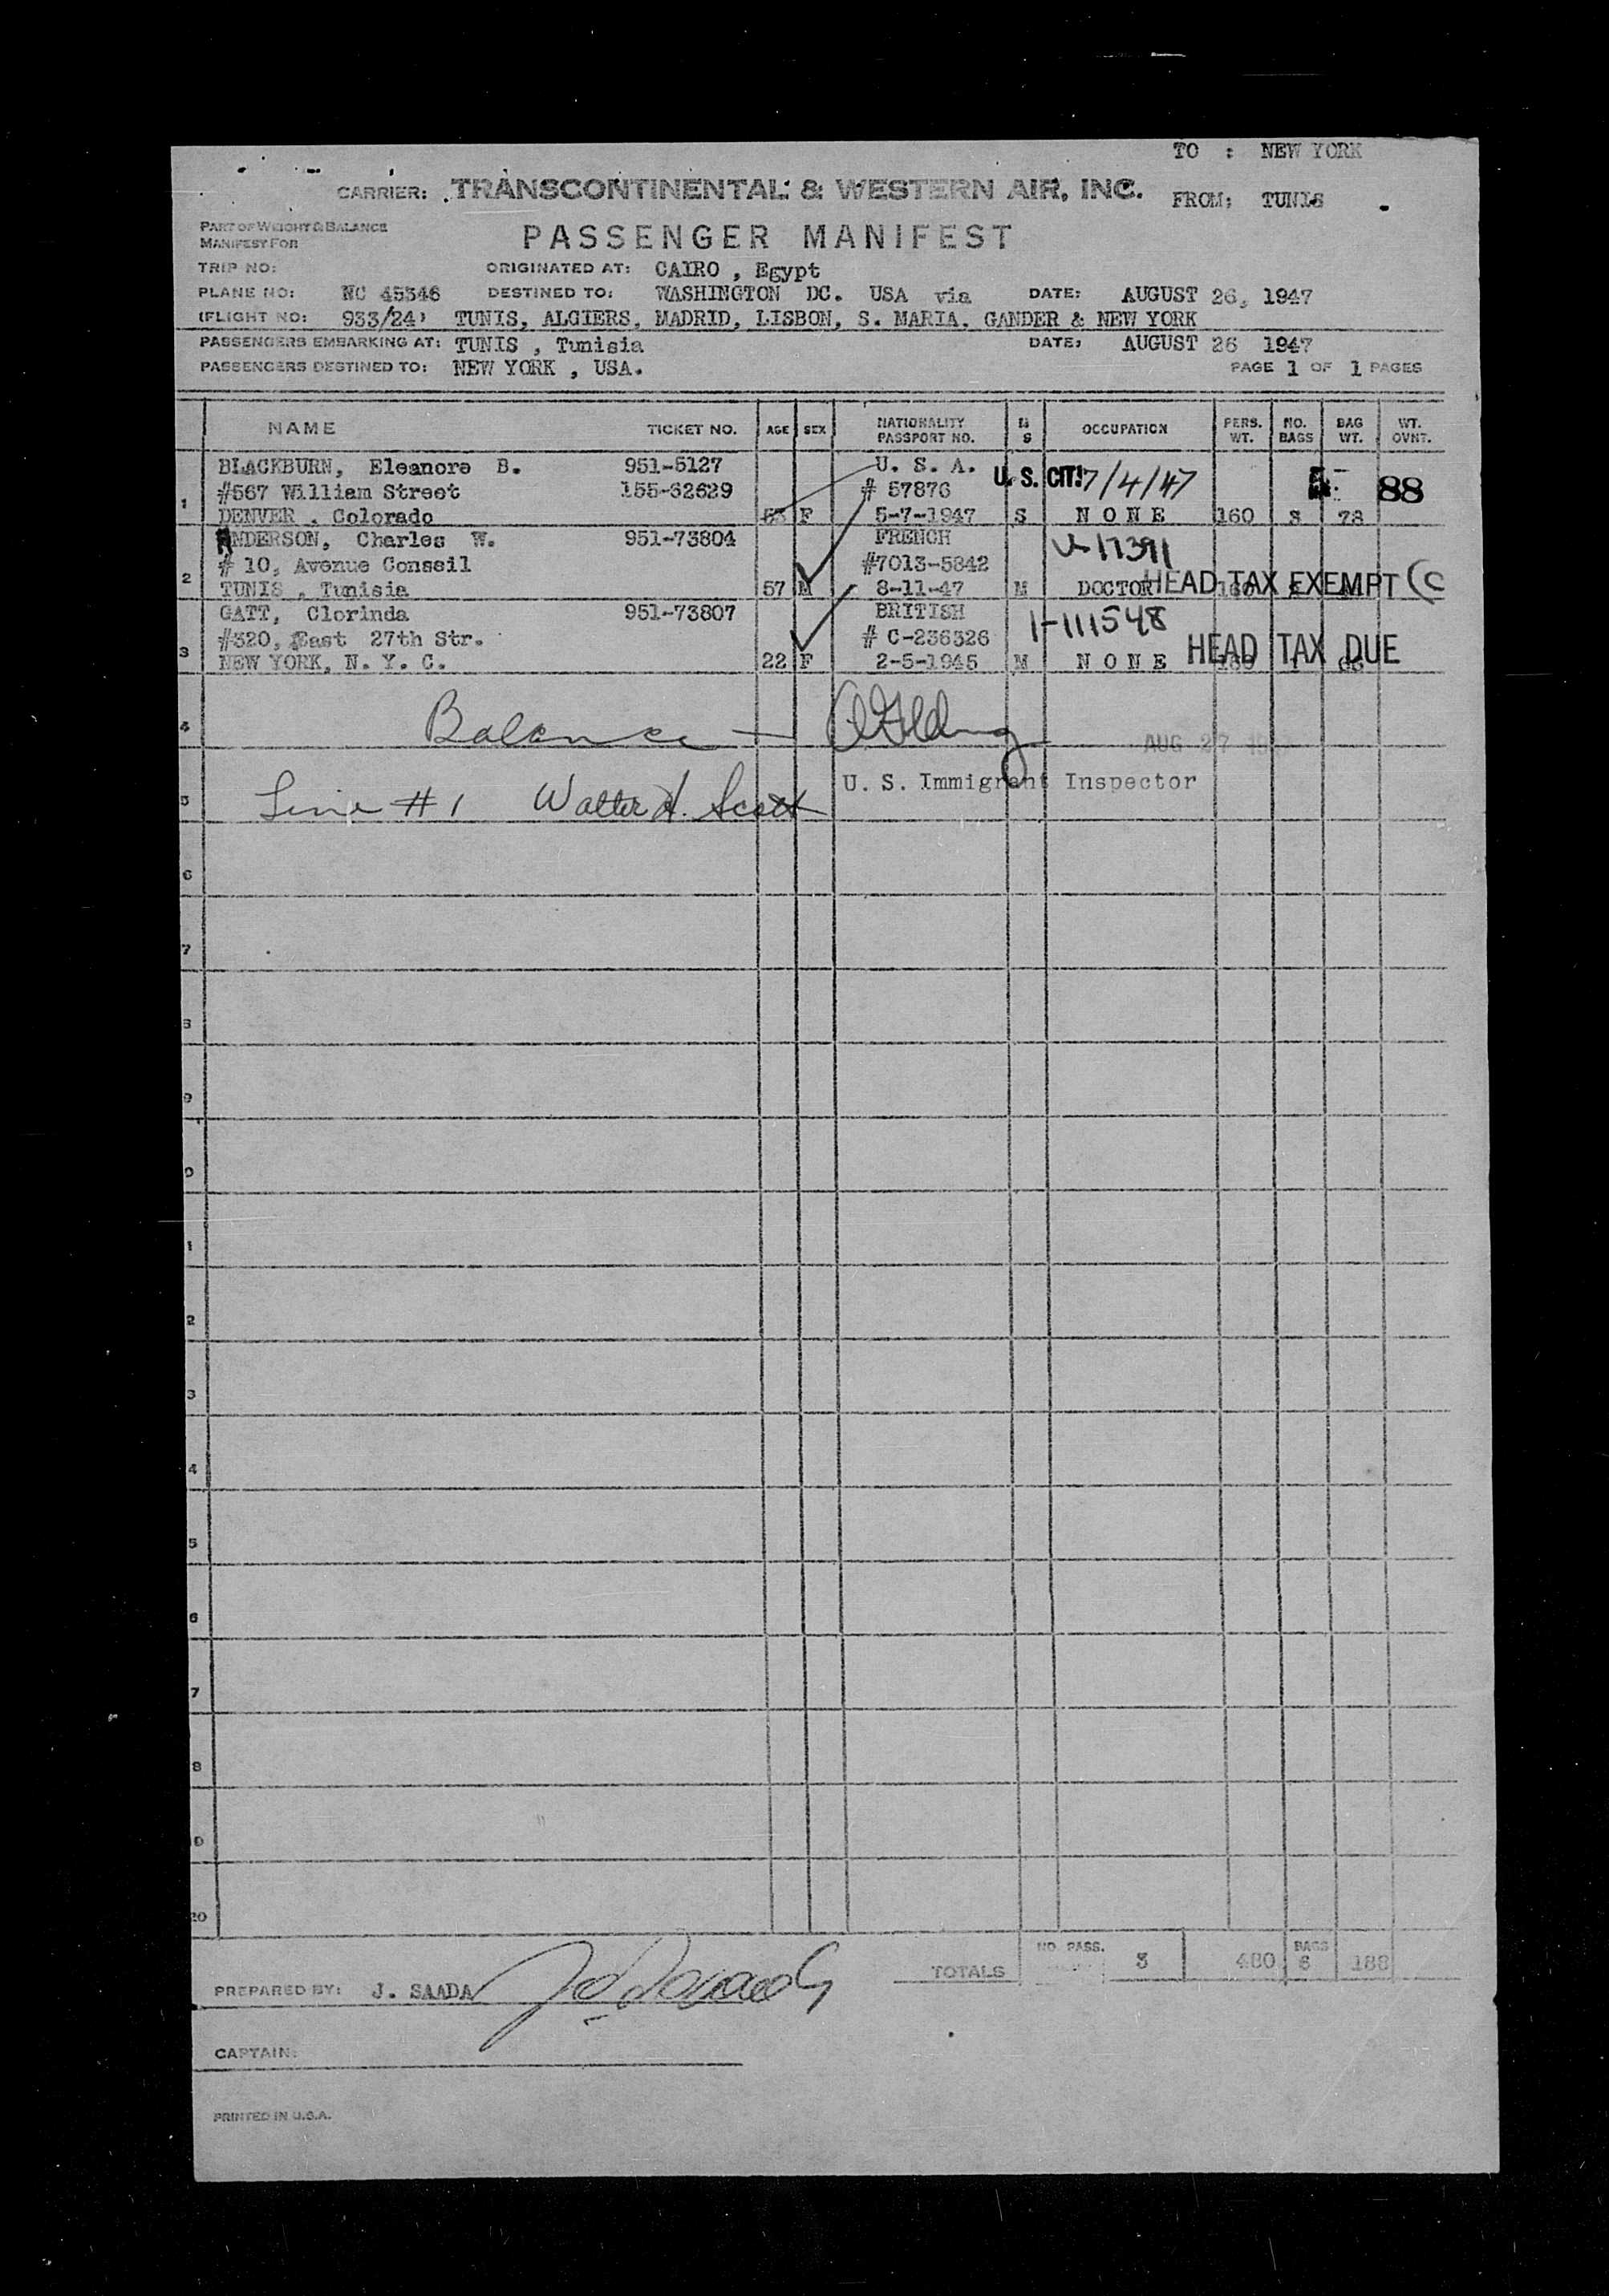 TO : NEW YORK
CARRIER: TRANSCONTINENTAL & WESTERN AIR, INC.
FROM: TUNIS
PART OF WEIGHT & BALANCE
MANIFEST FOR
PASSENGER MANIFEST
TRIP NO: ORIGINATED AT: CAIRO , Egypt
PLANE NO: NC 45346 DESTINED TO: WASHINGTON DC. USA via DATE: AUGUST 26, 1947
(FLIGHT NO: 933/24) TUNIS, ALGIERS, MADRID, LISBON, S. MARIA, GANDER & NEW YORK
PASSENGERS EMBARKING AT: TUNIS , Tunisia DATE: AUGUST 26 1947
PASSENGERS DESTINED TO: NEW YORK , USA. PAGE 1 OF 1 PAGES
NAME TICKET NO. AGE SEX NATIONALITY PASSPORT NO. M S OCCUPATION PERS. WT. NO. BAGS BAG WT. WT. OVNT.
BLACKBURN, Eleanore B. 951-5127 U. S. A.
#567 William Street 155-62629 # 57876 U. S. CIT! 7/4/47 88
1 DENVER , Colorado F 5-7-1947 S N O N E 160 3 78
ANDERSON, Charles W. 951-73804 FRENCH V-17391
# 10, Avenue Conseil #7013-5842
2 TUNIS , Tunisia 57 M 8-11-47 M DOCTOR HEAD TAX EXEMPT (C
GATT, Clorinda 951-73807 BRITISH 1-111548
#320, East 27th Str. # C-236326
3 NEW YORK, N. Y. C. 22 F 2-5-1945 M N O N E HEAD TAX DUE
4 Balance —
AUG 27
U. S. Immigrant Inspector
5 Line # 1 Walter H. Scott
6
7
8
9
0
1
2
3
4
5
6
7
8
9
20
TOTALS NO. PASS. 3 480 BAGS 6 188
PREPARED BY: J. SAADA
CAPTAIN:
PRINTED IN U.S.A.